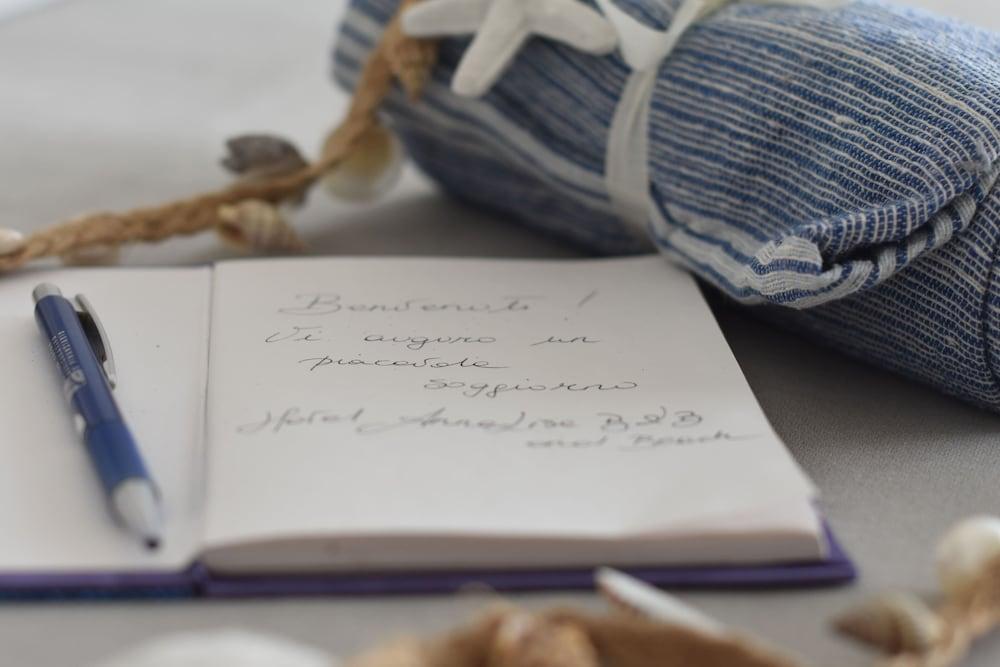 Benvenuti!
Vi auguro un
piacevole
soggiorno
Hotel AnnaLise B&B
and Beach